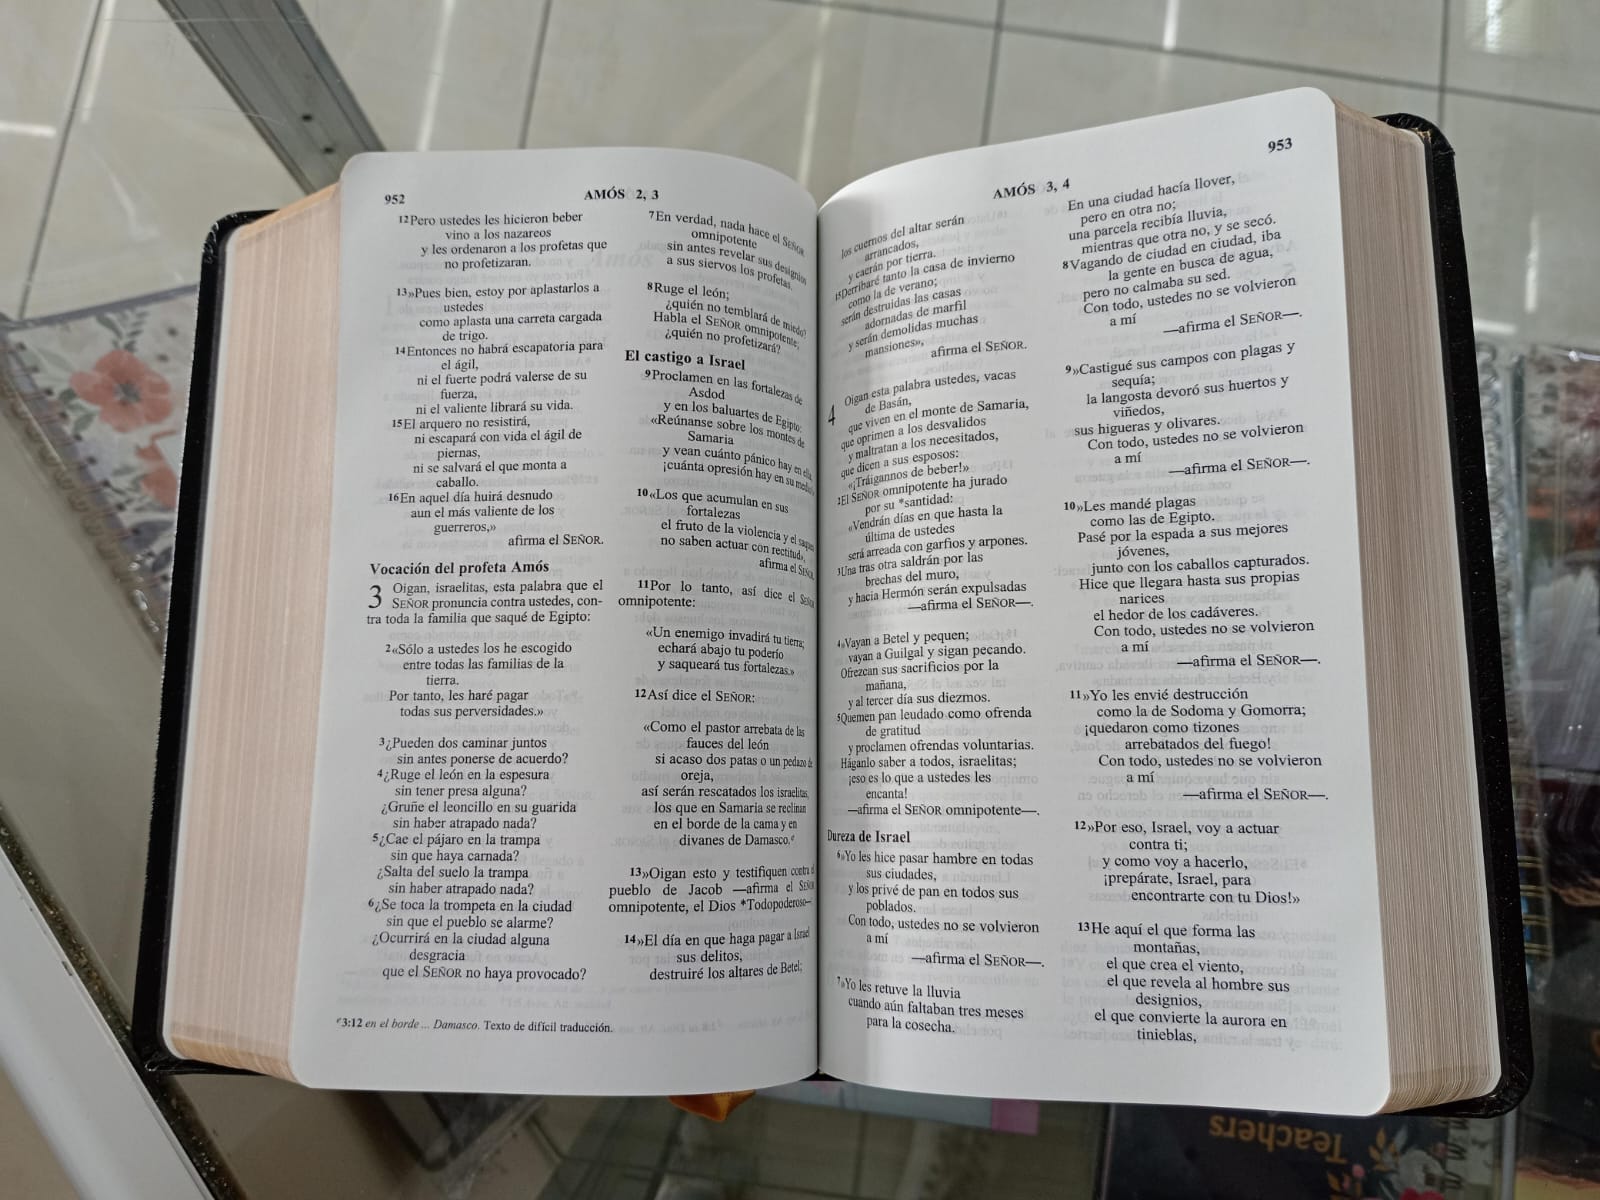 952
AMÓS 2, 3
12Pero ustedes les hicieron beber
vino a los nazareos
y les ordenaron a los profetas que
no profetizaran.
13»Pues bien, estoy por aplastarlos a
ustedes
como aplasta una carreta cargada
de trigo.
14Entonces no habrá escapatoria para
el ágil,
ni el fuerte podrá valerse de su
fuerza,
ni el valiente librará su vida.
15El arquero no resistirá,
ni escapará con vida el ágil de
piernas,
ni se salvará el que monta a
caballo.
16En aquel día huirá desnudo
aun el más valiente de los
guerreros,»
afirma el SEÑOR.
Vocación del profeta Amós
3 Oigan, israelitas, esta palabra que el
SEÑOR pronuncia contra ustedes, con-
tra toda la familia que saqué de Egipto:
2«Sólo a ustedes los he escogido
entre todas las familias de la
tierra.
Por tanto, les haré pagar
todas sus perversidades.»
3¿Pueden dos caminar juntos
sin antes ponerse de acuerdo?
4¿Ruge el león en la espesura
sin tener presa alguna?
¿Gruñe el leoncillo en su guarida
sin haber atrapado nada?
5¿Cae el pájaro en la trampa
sin que haya carnada?
¿Salta del suelo la trampa
sin haber atrapado nada?
6¿Se toca la trompeta en la ciudad
sin que el pueblo se alarme?
¿Ocurrirá en la ciudad alguna
desgracia
que el SEÑOR no haya provocado?
7En verdad, nada hace el SEÑOR
omnipotente
sin antes revelar sus designios
a sus siervos los profetas.
8Ruge el león;
¿quién no temblará de miedo?
Habla el SEÑOR omnipotente;
¿quién no profetizará?
El castigo a Israel
9Proclamen en las fortalezas de
Asdod
y en los baluartes de Egipto:
«Reúnanse sobre los montes de
Samaria
y vean cuánto pánico hay en ella,
¡cuánta opresión hay en su medio!»
10«Los que acumulan en sus
fortalezas
el fruto de la violencia y el saqueo
no saben actuar con rectitud»,
afirma el SEÑOR.
11Por lo tanto, así dice el SEÑOR
omnipotente:
«Un enemigo invadirá tu tierra;
echará abajo tu poderío
y saqueará tus fortalezas.»
12Así dice el SEÑOR:
«Como el pastor arrebata de las
fauces del león
si acaso dos patas o un pedazo de
oreja,
así serán rescatados los israelitas,
los que en Samaria se reclinan
en el borde de la cama y en
divanes de Damasco.e
13»Oigan esto y testifiquen contra el
pueblo de Jacob —afirma el SEÑOR
omnipotente, el Dios *Todopoderoso—
14»El día en que haga pagar a Israel
sus delitos,
destruiré los altares de Betel;
e3:12 en el borde ... Damasco. Texto de difícil traducción.
AMÓS 3, 4
953
los cuernos del altar serán
arrancados,
y caerán por tierra.
15Derribaré tanto la casa de invierno
como la de verano;
serán destruidas las casas
adornadas de marfil
y serán demolidas muchas
mansiones»,
afirma el SEÑOR.
4 Oigan esta palabra ustedes, vacas
de Basán,
que viven en el monte de Samaria,
que oprimen a los desvalidos
y maltratan a los necesitados,
que dicen a sus esposos:
«¡Tráigannos de beber!»
2El SEÑOR omnipotente ha jurado
por su *santidad:
«Vendrán días en que hasta la
última de ustedes
será arreada con garfios y arpones.
3Una tras otra saldrán por las
brechas del muro,
y hacia Hermón serán expulsadas
—afirma el SEÑOR—.
4»Vayan a Betel y pequen;
vayan a Guilgal y sigan pecando.
Ofrezcan sus sacrificios por la
mañana,
y al tercer día sus diezmos.
5Quemen pan leudado como ofrenda
de gratitud
y proclamen ofrendas voluntarias.
Háganlo saber a todos, israelitas;
¡eso es lo que a ustedes les
encanta!
—afirma el SEÑOR omnipotente—.
Dureza de Israel
6»Yo les hice pasar hambre en todas
sus ciudades,
y los privé de pan en todos sus
poblados.
Con todo, ustedes no se volvieron
a mí
—afirma el SEÑOR—.
7»Yo les retuve la lluvia
cuando aún faltaban tres meses
para la cosecha.
En una ciudad hacía llover,
pero en otra no;
una parcela recibía lluvia,
mientras que otra no, y se secó.
8Vagando de ciudad en ciudad, iba
la gente en busca de agua,
pero no calmaba su sed.
Con todo, ustedes no se volvieron
a mí
—afirma el SEÑOR—.
9»Castigué sus campos con plagas y
sequía;
la langosta devoró sus huertos y
viñedos,
sus higueras y olivares.
Con todo, ustedes no se volvieron
a mí
—afirma el SEÑOR—.
10»Les mandé plagas
como las de Egipto.
Pasé por la espada a sus mejores
jóvenes,
junto con los caballos capturados.
Hice que llegara hasta sus propias
narices
el hedor de los cadáveres.
Con todo, ustedes no se volvieron
a mí
—afirma el SEÑOR—.
11»Yo les envié destrucción
como la de Sodoma y Gomorra;
¡quedaron como tizones
arrebatados del fuego!
Con todo, ustedes no se volvieron
a mí
—afirma el SEÑOR—.
12»Por eso, Israel, voy a actuar
contra ti;
y como voy a hacerlo,
¡prepárate, Israel, para
encontrarte con tu Dios!»
13He aquí el que forma las
montañas,
el que crea el viento,
el que revela al hombre sus
designios,
el que convierte la aurora en
tinieblas,
Teachers